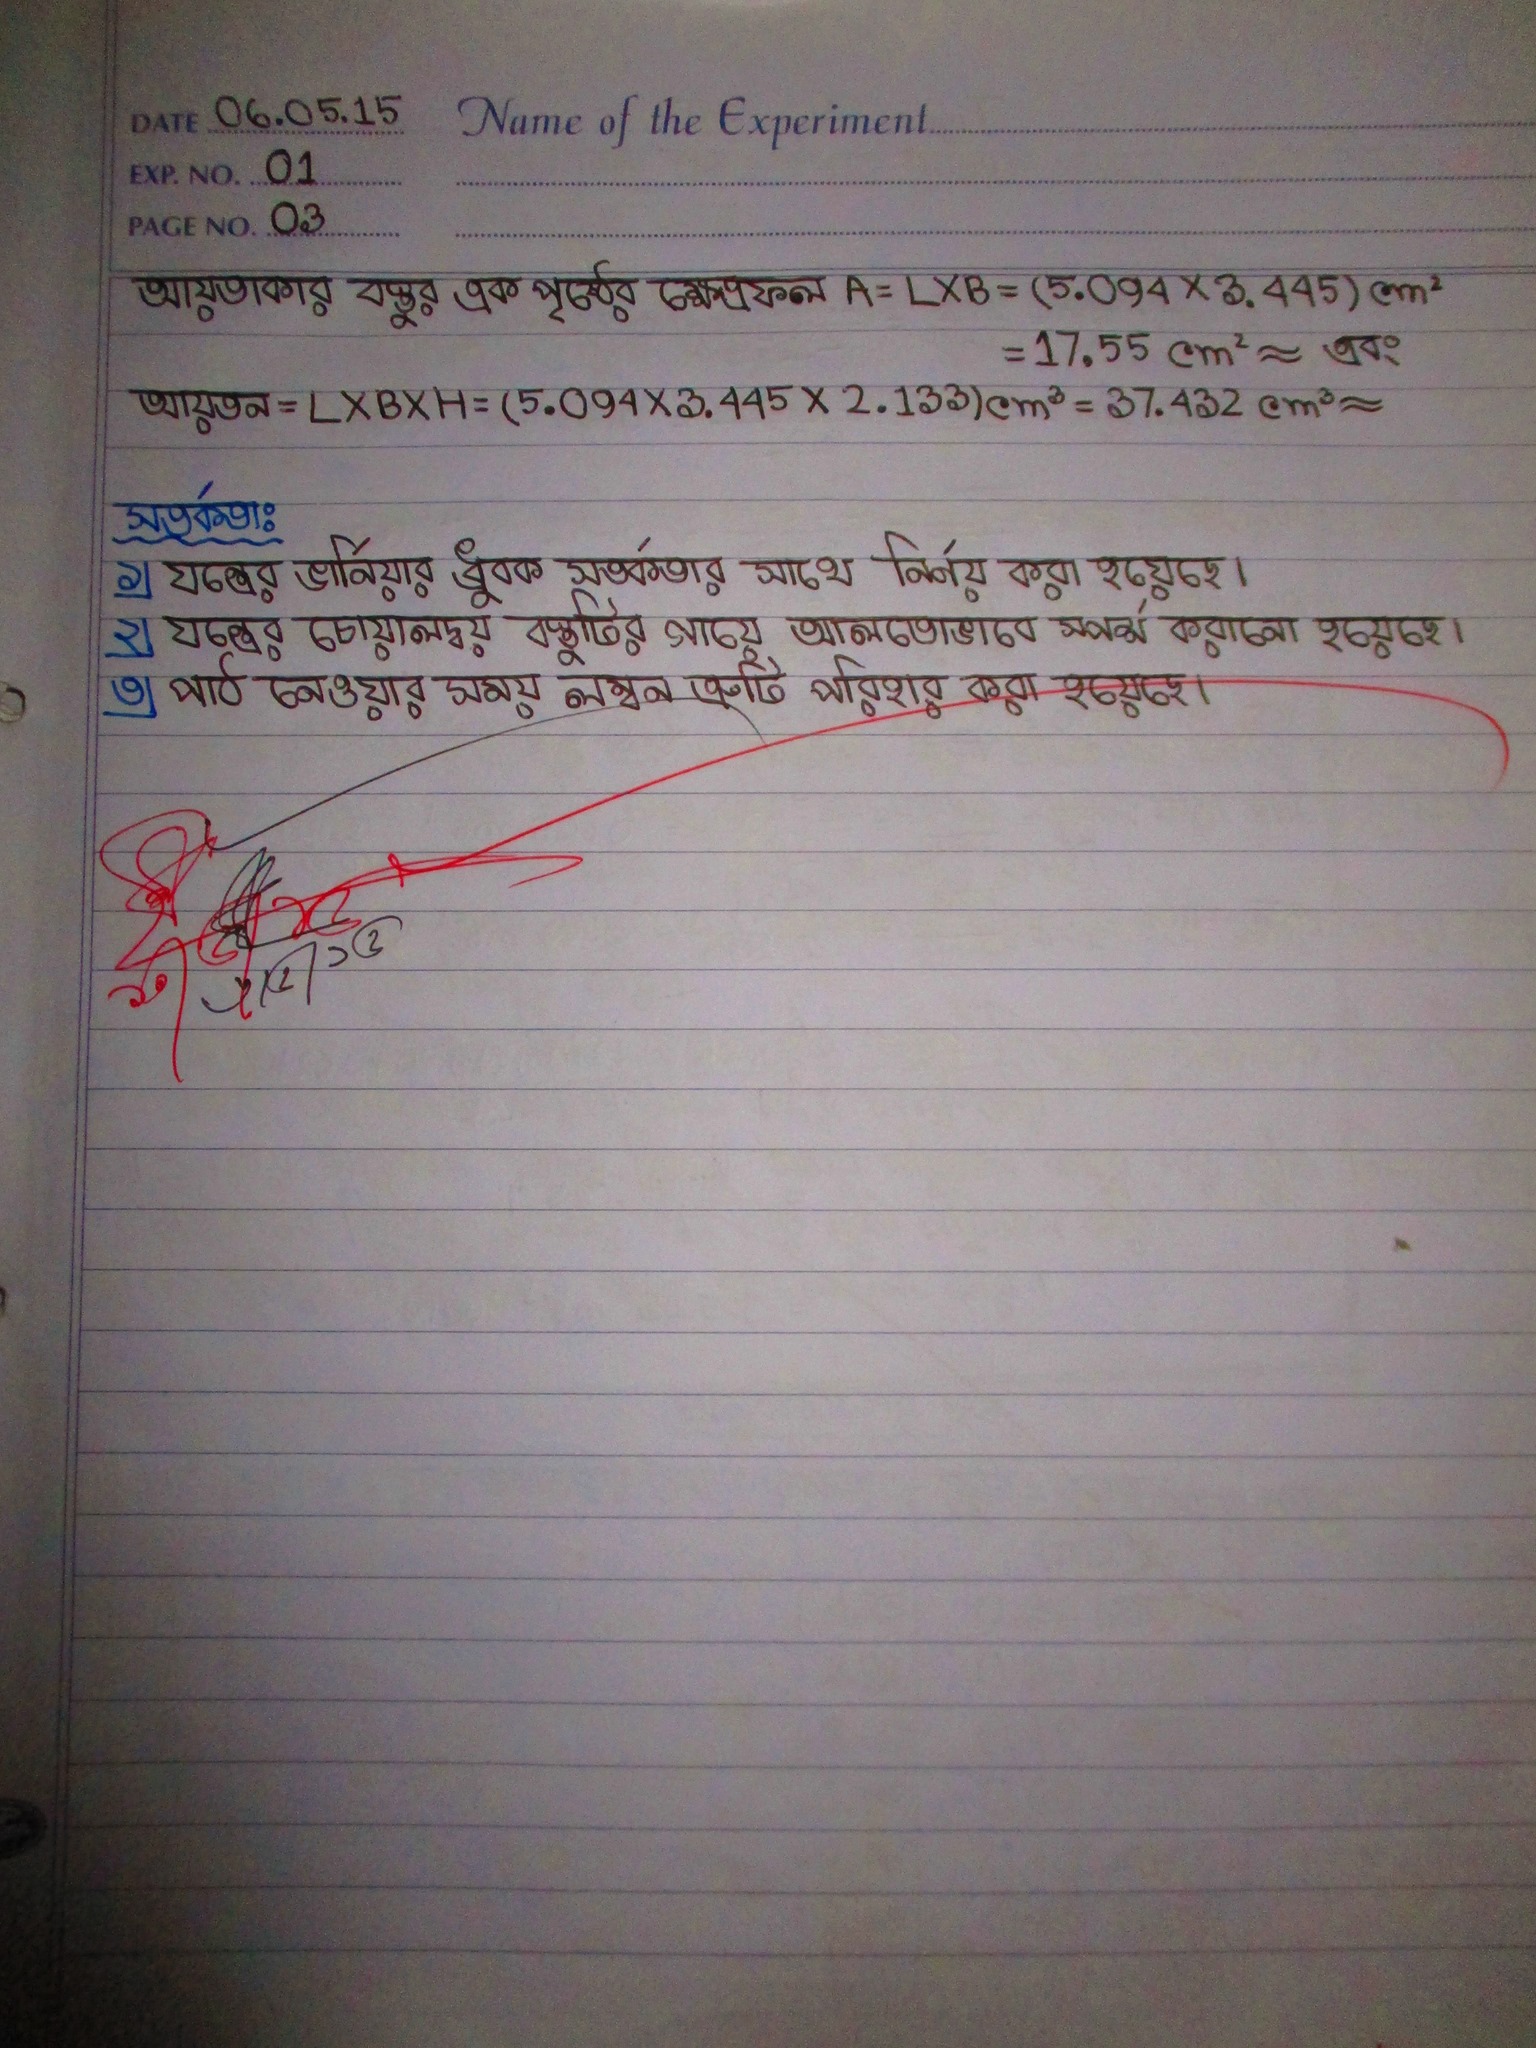 DATE 06.05.15 Name of the Experiment
EXP. NO. 01
PAGE NO. 03
আয়তাকার বস্তুর এক পৃষ্ঠের ক্ষেত্রফল A = L X B = (5.094 X 3.445) cm²
= 17.55 cm² ≈ এবং
আয়তন = L X B X H = (5.094 X 3.445 X 2.133) cm³ = 37.432 cm³ ≈
সতর্কতাঃ
১) যন্ত্রের ভার্নিয়ার ধ্রুবক সতর্কতার সাথে নির্ণয় করা হয়েছে।
২) যন্ত্রের চোয়ালদ্বয় বস্তুটির গায়ে আলতোভাবে স্পর্শ করানো হয়েছে।
৩) পাঠ নেওয়ার সময় লম্বন ত্রুটি পরিহার করা হয়েছে।